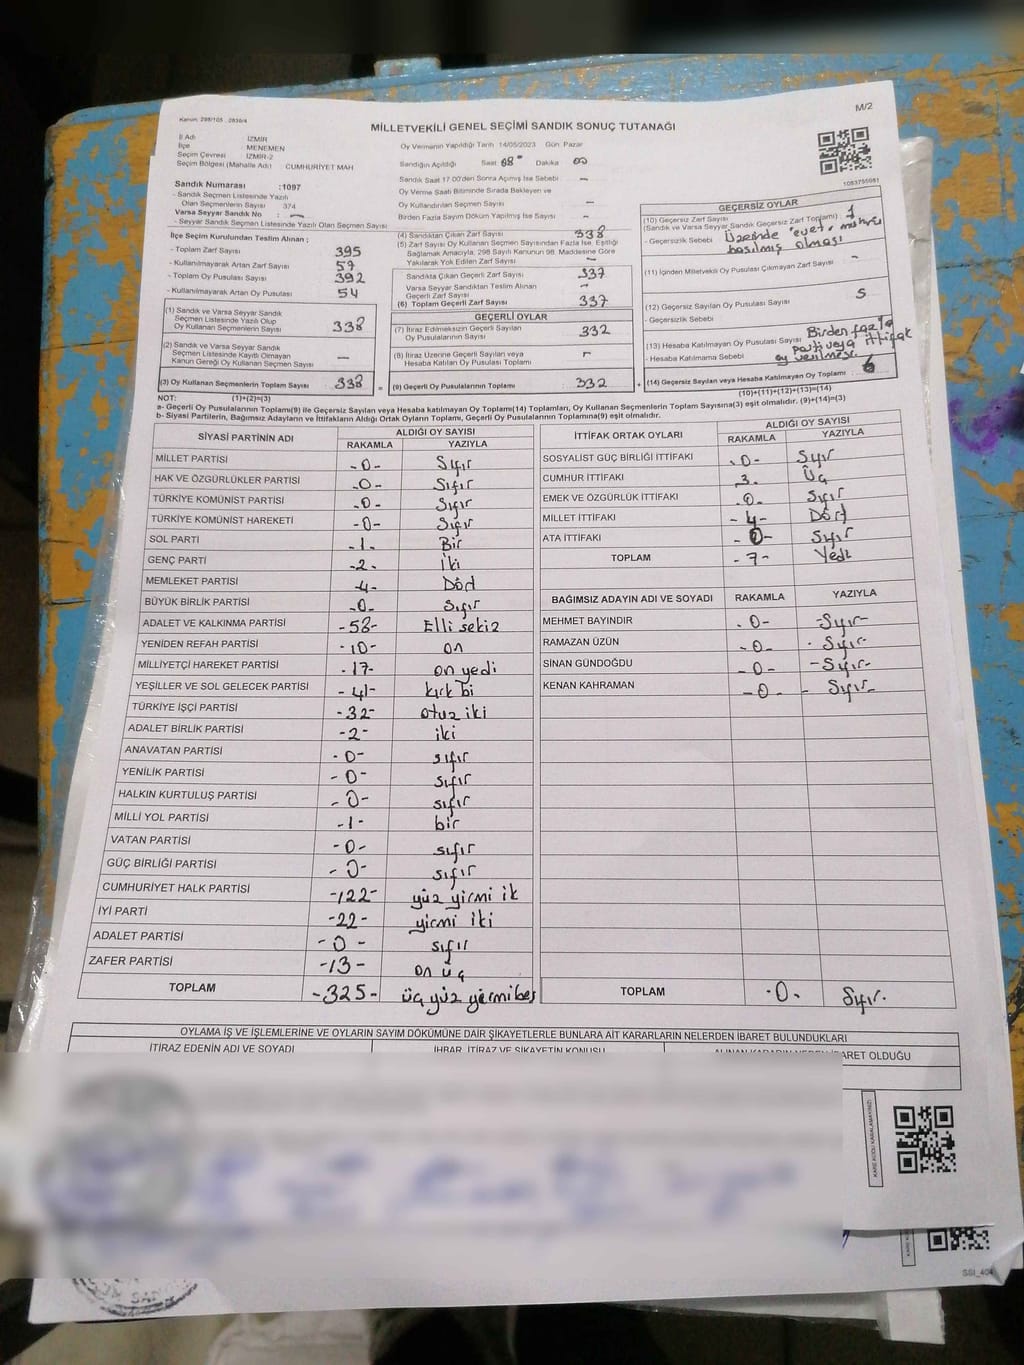 Kanun: 298/105 , 2839/4
M/2
MİLLETVEKİLİ GENEL SEÇİMİ SANDIK SONUÇ TUTANAĞI
İl Adı İZMİR
İlçe MENEMEN
Seçim Çevresi İZMİR-2
Seçim Bölgesi (Mahalle Adı) CUMHURİYET MAH
Sandık Numarası :1097
- Sandık Seçmen Listesinde Yazılı
Olan Seçmenlerin Sayısı 374
Varsa Seyyar Sandık No : —
- Seyyar Sandık Seçmen Listesinde Yazılı Olan Seçmen Sayısı
İlçe Seçim Kurulundan Teslim Alınan ;
- Toplam Zarf Sayısı 395
- Kullanılmayarak Artan Zarf Sayısı 57
- Toplam Oy Pusulası Sayısı 392
- Kullanılmayarak Artan Oy Pusulası 54
(1) Sandık ve Varsa Seyyar Sandık
Seçmen Listesinde Yazılı Olup
Oy Kullanan Seçmenlerin Sayısı 338
(2) Sandık ve Varsa Seyyar Sandık
Seçmen Listesinde Kayıtlı Olmayan
Kanun Gereği Oy Kullanan Seçmen Sayısı —
(3) Oy Kullanan Seçmenlerin Toplam Sayısı 338 =
Oy Vermenin Yapıldığı Tarih 14/05/2023 Gün Pazar
Sandığın Açıldığı Saat 08 Dakika 00
Sandık Saat 17.00'den Sonra Açılmış İse Sebebi —
Oy Verme Saati Bitiminde Sırada Bekleyen ve
Oy Kullandırılan Seçmen Sayısı —
Birden Fazla Sayım Döküm Yapılmış İse Sayısı —
(4) Sandıktan Çıkan Zarf Sayısı 338
(5) Zarf Sayısı Oy Kullanan Seçmen Sayısından Fazla İse, Eşitliği
Sağlamak Amacıyla, 298 Sayılı Kanunun 98. Maddesine Göre
Yakılarak Yok Edilen Zarf Sayısı —
Sandıkta Çıkan Geçerli Zarf Sayısı 337
Varsa Seyyar Sandıktan Teslim Alınan
Geçerli Zarf Sayısı —
(6) Toplam Geçerli Zarf Sayısı 337
GEÇERLİ OYLAR
(7) İtiraz Edilmeksizin Geçerli Sayılan
Oy Pusulasının Sayısı 332
(8) İtiraz Üzerine Geçerli Sayılan veya
Hesaba Katılan Oy Pusulası Toplamı —
(9) Geçerli Oy Pusulalarının Toplamı 332 +
1083795081
GEÇERSİZ OYLAR
(10) Geçersiz Zarf Sayısı
(Sandık ve Varsa Seyyar Sandık Geçersiz Zarf Toplamı) : 1
- Geçersizlik Sebebi Üzerinde "evet" mührü
basılmış olması
(11) İçinden Milletvekili Oy Pusulası Çıkmayan Zarf Sayısı —
(12) Geçersiz Sayılan Oy Pusulası Sayısı 5
- Geçersizlik Sebebi
(13) Hesaba Katılmayan Oy Pusulası Sayısı Birden fazla
- Hesaba Katılmama Sebebi parti veya ittifak
oy verilmesi.
(14) Geçersiz Sayılan veya Hesaba Katılmayan Oy Toplamı : 6
NOT: (1)+(2)=(3) (10)+(11)+(12)+(13)=(14)
a- Geçerli Oy Pusulalarının Toplamı(9) ile Geçersiz Sayılan veya Hesaba Katılmayan Oy Toplamı(14) Toplamları, Oy Kullanan Seçmenlerin Toplam Sayısına(3) eşit olmalıdır. (9)+(14)=(3)
b- Siyasi Partilerin, Bağımsız Adayların ve İttifakların Aldığı Ortak Oyların Toplamı, Geçerli Oy Pusulalarının Toplamına(9) eşit olmalıdır.
SİYASİ PARTİNİN ADI ALDIĞI OY SAYISI
RAKAMLA YAZIYLA
MİLLET PARTİSİ -0- Sıfır
HAK VE ÖZGÜRLÜKLER PARTİSİ -0- Sıfır
TÜRKİYE KOMÜNİST PARTİSİ -0- Sıfır
TÜRKİYE KOMÜNİST HAREKETİ -0- Sıfır
SOL PARTİ -1- Bir
GENÇ PARTİ -2- İki
MEMLEKET PARTİSİ -4- Dört
BÜYÜK BİRLİK PARTİSİ -0- Sıfır
ADALET VE KALKINMA PARTİSİ -58- Elli sekiz
YENİDEN REFAH PARTİSİ -10- on
MİLLİYETÇİ HAREKET PARTİSİ -17- on yedi
YEŞİLLER VE SOL GELECEK PARTİSİ -41- kırk bi
TÜRKİYE İŞÇİ PARTİSİ -32- otuz iki
ADALET BİRLİK PARTİSİ -2- iki
ANAVATAN PARTİSİ -0- sıfır
YENİLİK PARTİSİ -0- sıfır
HALKIN KURTULUŞ PARTİSİ -0- sıfır
MİLLİ YOL PARTİSİ -1- bir
VATAN PARTİSİ -0- sıfır
GÜÇ BİRLİĞİ PARTİSİ -0- sıfır
CUMHURİYET HALK PARTİSİ -122- yüz yirmi ik
İYİ PARTİ -22- yirmi iki
ADALET PARTİSİ -0- sıfır
ZAFER PARTİSİ -13- on üç
TOPLAM -325- üç yüz yirmi beş
İTTİFAK ORTAK OYLARI ALDIĞI OY SAYISI
RAKAMLA YAZIYLA
SOSYALİST GÜÇ BİRLİĞİ İTTİFAKI -0- Sıfır
CUMHUR İTTİFAKI 3. Üç
EMEK VE ÖZGÜRLÜK İTTİFAKI .0. Sıfır
MİLLET İTTİFAKI -4- Dört
ATA İTTİFAKI -0- Sıfır
TOPLAM -7- Yedi
BAĞIMSIZ ADAYIN ADI VE SOYADI RAKAMLA YAZIYLA
MEHMET BAYINDIR .0- -Sıfır-
RAMAZAN ÜZÜN -0- -Sıfır-
SİNAN GÜNDOĞDU -0- -Sıfır-
KENAN KAHRAMAN -0- - Sıfır-
TOPLAM -0. Sıfır.
OYLAMA İŞ VE İŞLEMLERİNE VE OYLARIN SAYIM DÖKÜMÜNE DAİR ŞİKAYETLERLE BUNLARA AİT KARARLARIN NELERDEN İBARET BULUNDUKLARI
İTİRAZ EDENİN ADI VE SOYADI İHBAR, İTİRAZ VE ŞİKAYETİN KONUSU ALINAN KARARIN NEDEN İBARET OLDUĞU
KARE KODU KARALAMAYINIZ!
SSI_404